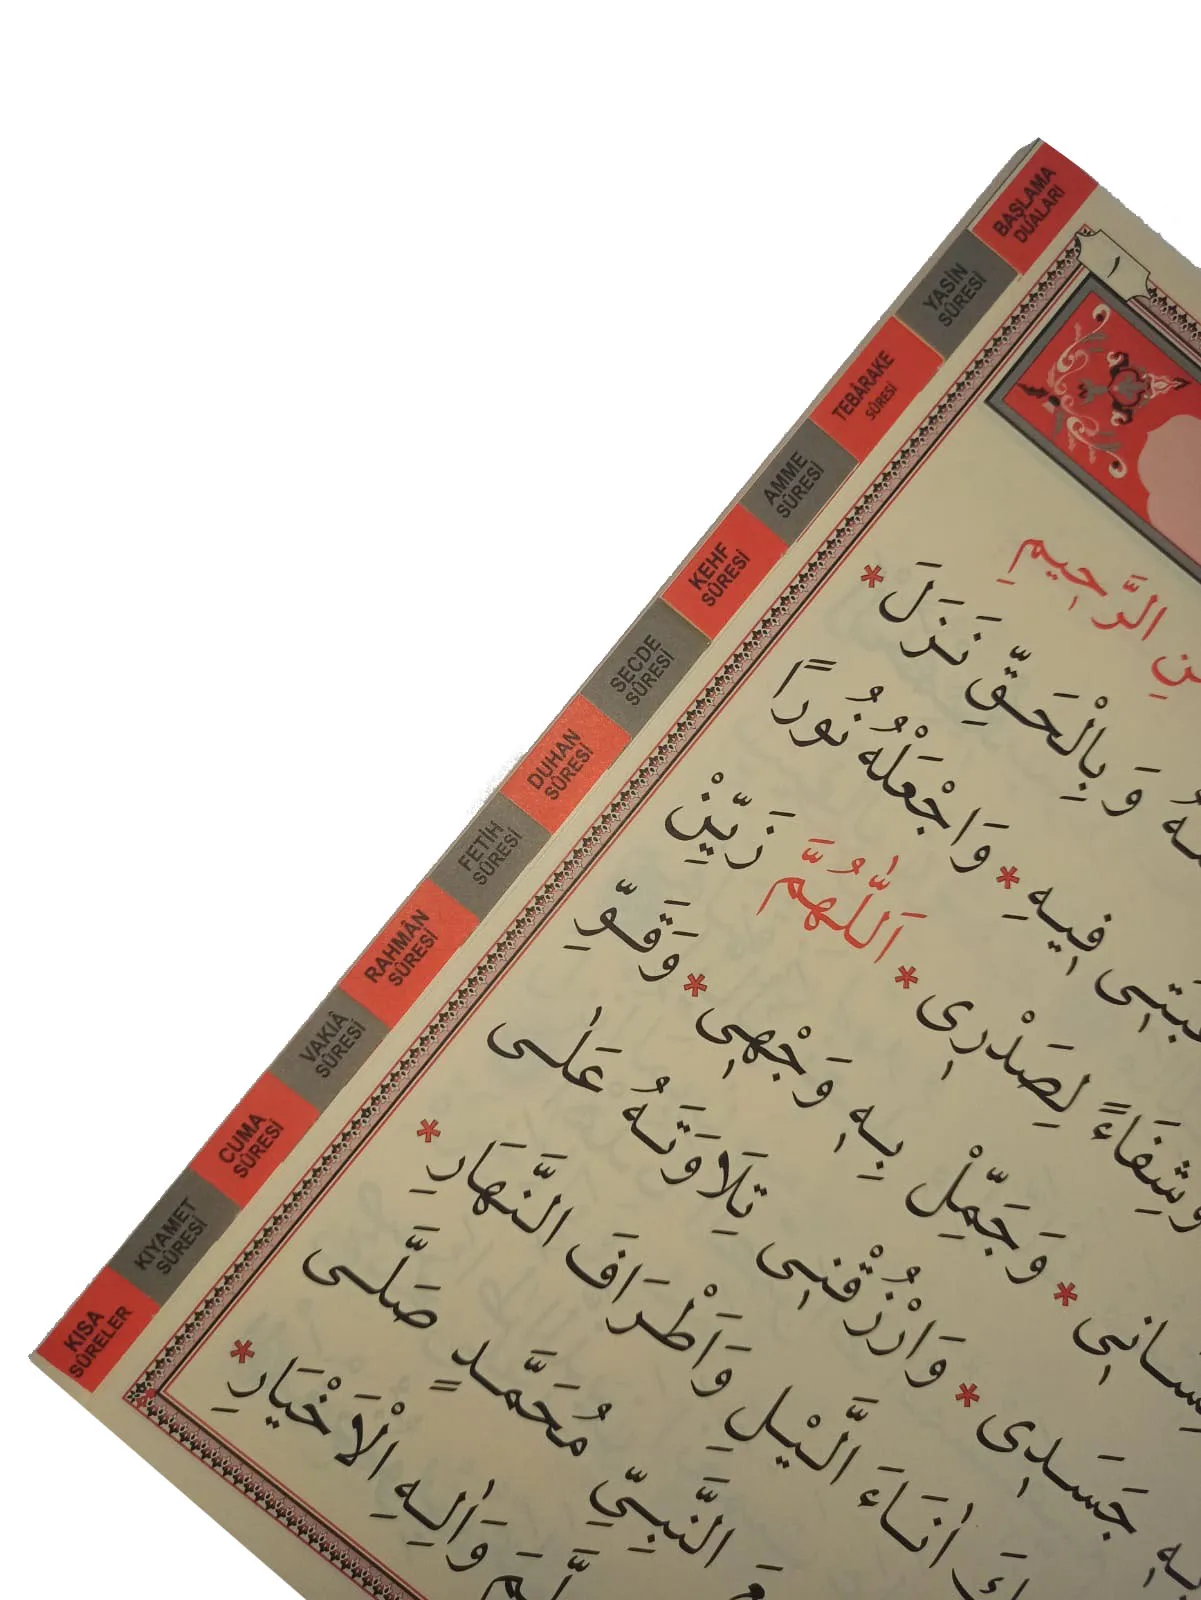 BAŞLAMA
DUALARI
YASİN
SÛRESİ
TEBÂRAKE
SÛRESİ
AMME
SÛRESİ
KEHF
SÛRESİ
SECDE
SÛRESİ
DUHAN
SÛRESİ
FETİH
SÛRESİ
RAHMÂN
SÛRESİ
VAKIÂ
SÛRESİ
CUMA
SÛRESİ
KIYAMET
SÛRESİ
KISA
SÛRELER
١
الرَّحِيمِ
وَبِالْحَقِّ نَزَلَ *
فِيهِ * وَاجْعَلْهُ نُورًا
وَشِفَاءً لِصَدْرِى * اَللّٰهُمَّ زَيِّنْ
وَجَمِّلْ بِهِ وَجْهِى * وَقَوِّ
بِهِ جَسَدِى * وَارْزُقْنِى تِلَاوَتَهُ عَلٰى
اٰنَاءَ الَّيْلِ وَاَطْرَافَ النَّهَارِ *
النَّبِيِّ مُحَمَّدٍ صَلَّى
وَاٰلِهِ الْاَخْيَارِ *